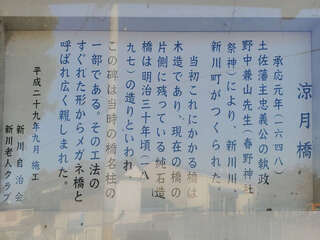 涼月橋
承応元年（一六四八）
土佐藩主忠義公の執政
野中兼山先生（春野神社
祭神）により、新川川、
新川町がつくられた。
当初これにかかる橋は
木造であり、現在の橋の
片側に残っている純石造
橋は明治三十年頃（一八
九七）の造りといわれ、
この碑は当時の橋名柱の
一部である。その工法の
すぐれた形からメガネ橋と
呼ばれ広く親しまれた。
平成二十九年九月 施工
新川自治会
新川老人クラブ